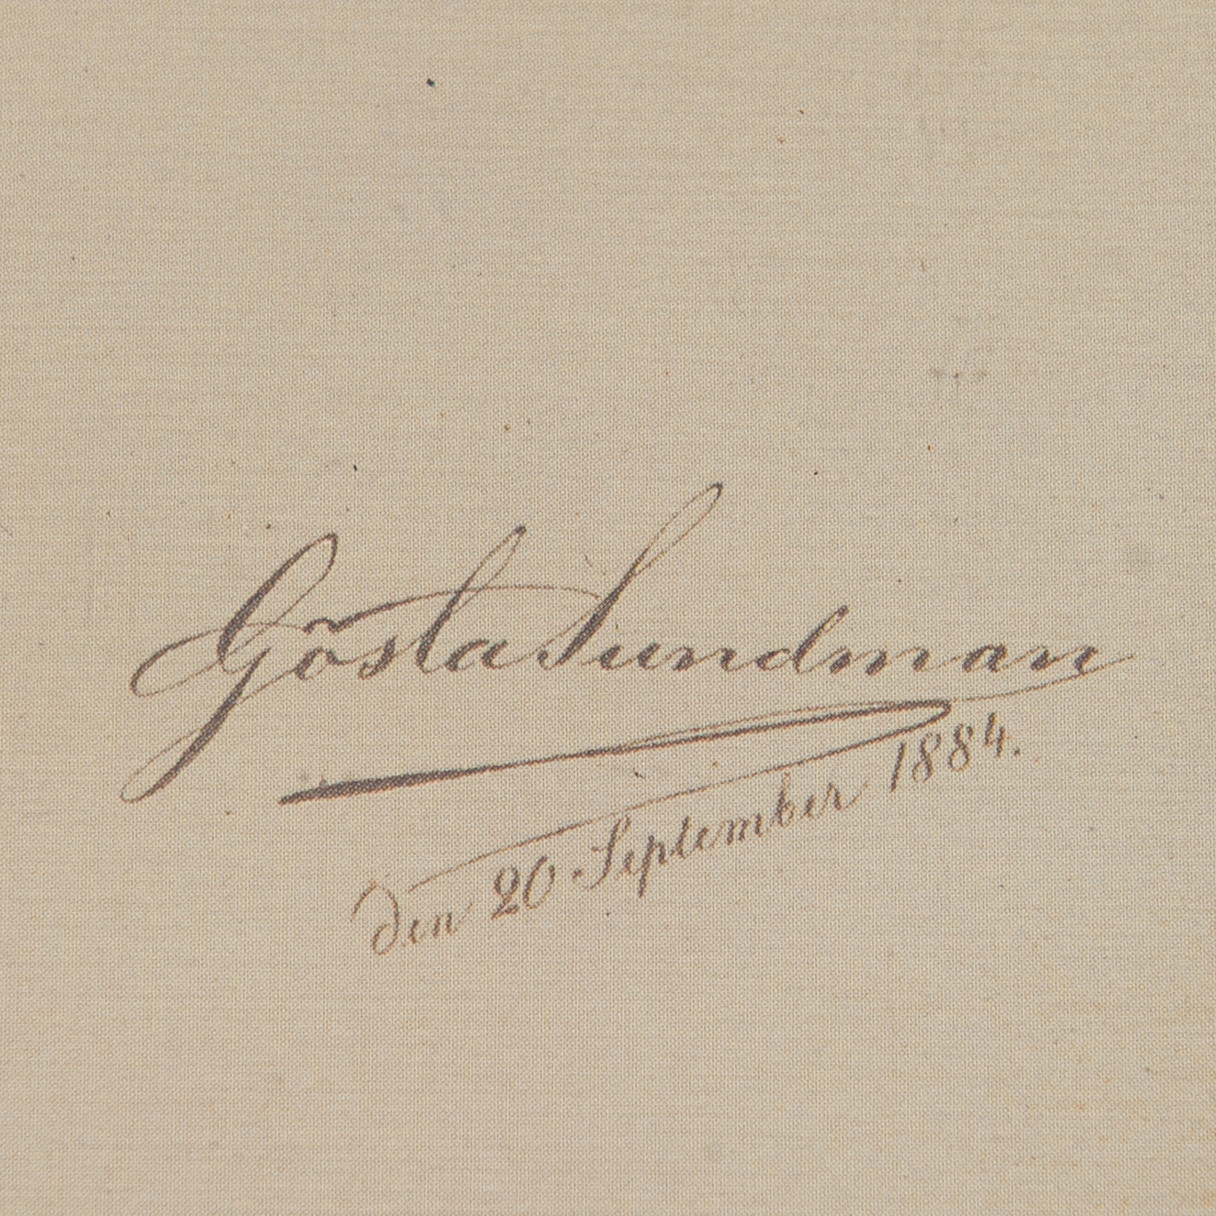 Gösta Sundman
den 20 September 1884.